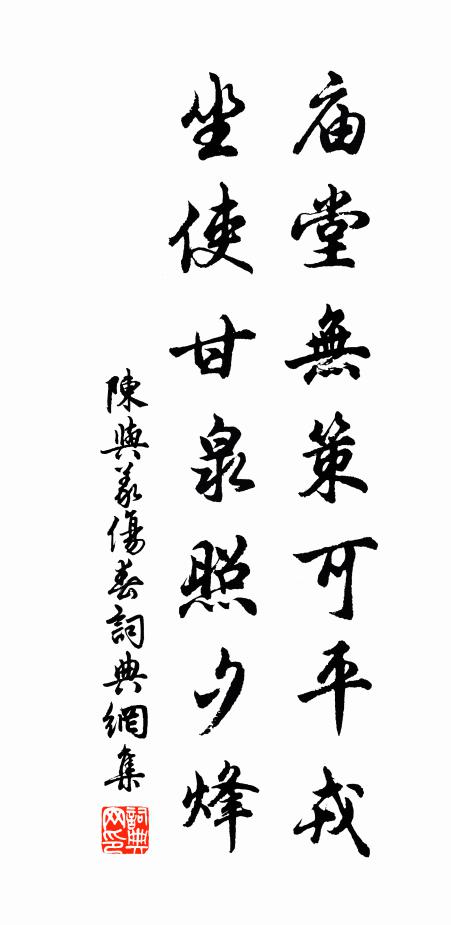 庙堂無策可平戎
坐使甘泉照夕烽
陳與義傷春詞典網集
詞典网印